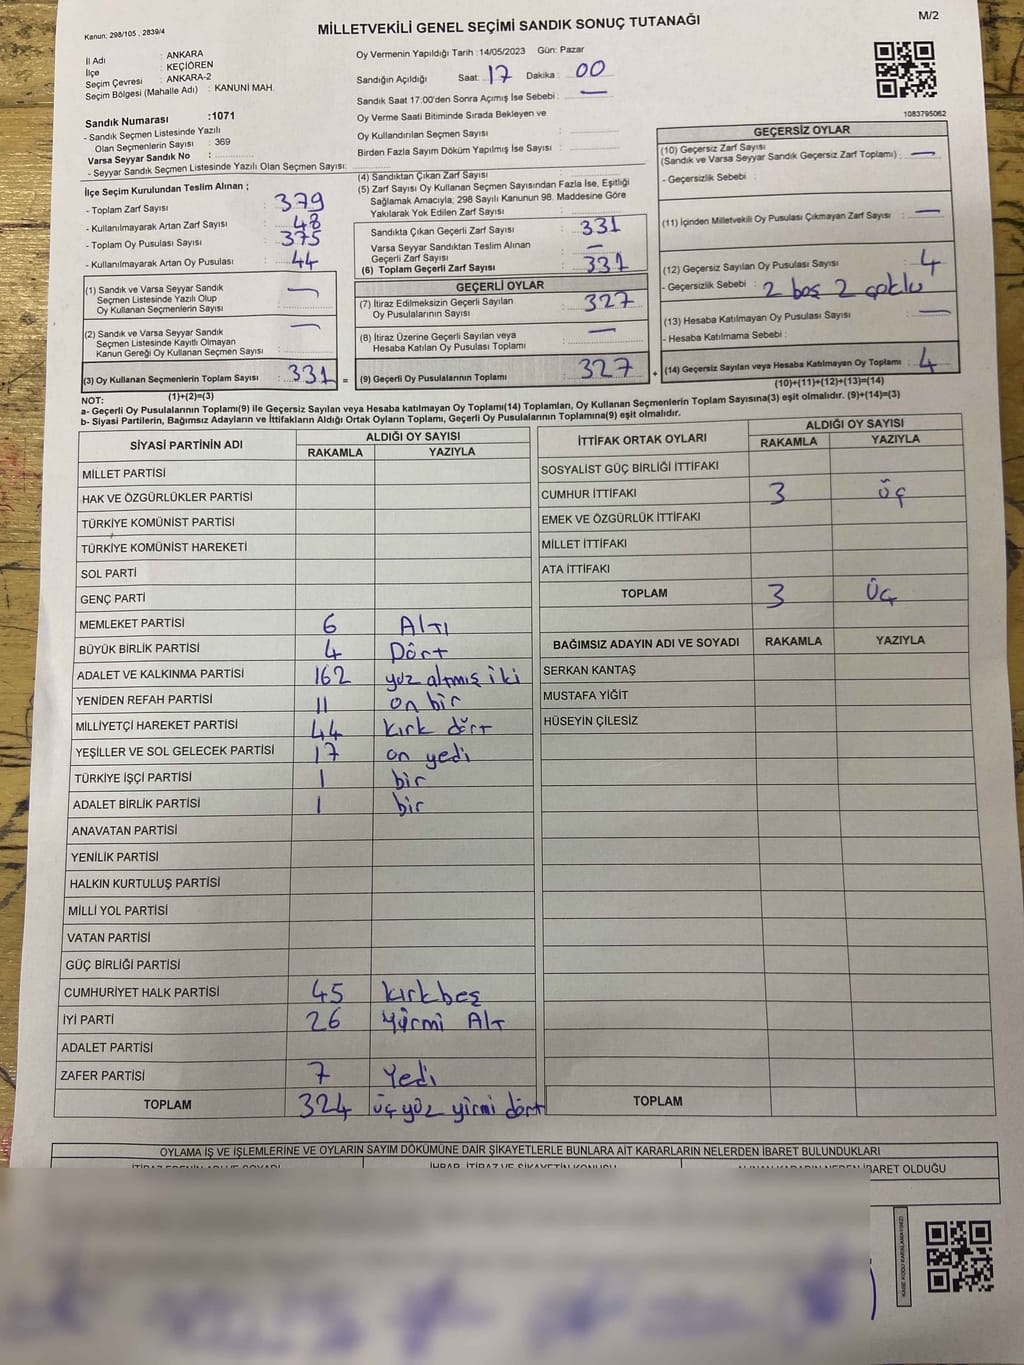 Kanun; 298/105 , 2839/4
MİLLETVEKİLİ GENEL SEÇİMİ SANDIK SONUÇ TUTANAĞI
M/2
İl Adı : ANKARA
İlçe : KEÇİÖREN
Seçim Çevresi : ANKARA-2
Seçim Bölgesi (Mahalle Adı) : KANUNİ MAH.
Sandık Numarası :1071
- Sandık Seçmen Listesinde Yazılı
Olan Seçmenlerin Sayısı : 369
Varsa Seyyar Sandık No :
- Seyyar Sandık Seçmen Listesinde Yazılı Olan Seçmen Sayısı:
Oy Vermenin Yapıldığı Tarih :14/05/2023 Gün: Pazar
Sandığın Açıldığı Saat: 17 Dakika : 00
Sandık Saat 17:00'den Sonra Açımış İse Sebebi : —
Oy Verme Saati Bitiminde Sırada Bekleyen ve
Oy Kullandırılan Seçmen Sayısı :
Birden Fazla Sayım Döküm Yapılmış İse Sayısı :
1083795062
İlçe Seçim Kurulundan Teslim Alınan ;
- Toplam Zarf Sayısı : 379
- Kullanılmayarak Artan Zarf Sayısı : 48
- Toplam Oy Pusulası Sayısı : 375
- Kullanılmayarak Artan Oy Pusulası : 44
(1) Sandık ve Varsa Seyyar Sandık
Seçmen Listesinde Yazılı Olup
Oy Kullanan Seçmenlerin Sayısı : —
(2) Sandık ve Varsa Seyyar Sandık
Seçmen Listesinde Kayıtlı Olmayan
Kanun Gereği Oy Kullanan Seçmen Sayısı : —
(3) Oy Kullanan Seçmenlerin Toplam Sayısı : 331 =
(1)+(2)=(3)
(4) Sandıktan Çıkan Zarf Sayısı :
(5) Zarf Sayısı Oy Kullanan Seçmen Sayısından Fazla İse, Eşitliği
Sağlamak Amacıyla; 298 Sayılı Kanunun 98. Maddesine Göre
Yakılarak Yok Edilen Zarf Sayısı :
Sandıkta Çıkan Geçerli Zarf Sayısı : 331
Varsa Seyyar Sandıktan Teslim Alınan
Geçerli Zarf Sayısı : —
(6) Toplam Geçerli Zarf Sayısı : 331
GEÇERLİ OYLAR
(7) İtiraz Edilmeksizin Geçerli Sayılan
Oy Pusulalarının Sayısı : 327
(8) İtiraz Üzerine Geçerli Sayılan veya
Hesaba Katılan Oy Pusulası Toplamı : —
(9) Geçerli Oy Pusulalarının Toplamı : 327 +
GEÇERSİZ OYLAR
(10) Geçersiz Zarf Sayısı
(Sandık ve Varsa Seyyar Sandık Geçersiz Zarf Toplamı) : —
- Geçersizlik Sebebi :
(11) İçinden Milletvekili Oy Pusulası Çıkmayan Zarf Sayısı : —
(12) Geçersiz Sayılan Oy Pusulası Sayısı : 4
- Geçersizlik Sebebi : 2 boş 2 çoklu
(13) Hesaba Katılmayan Oy Pusulası Sayısı : —
- Hesaba Katılmama Sebebi :
(14) Geçersiz Sayılan veya Hesaba Katılmayan Oy Toplamı : 4
(10)+(11)+(12)+(13)=(14)
NOT:
a- Geçerli Oy Pusulalarının Toplamı(9) ile Geçersiz Sayılan veya Hesaba katılmayan Oy Toplamı(14) Toplamları, Oy Kullanan Seçmenlerin Toplam Sayısına(3) eşit olmalıdır. (9)+(14)=(3)
b- Siyasi Partilerin, Bağımsız Adayların ve İttifakların Aldığı Ortak Oyların Toplamı, Geçerli Oy Pusulalarının Toplamına(9) eşit olmalıdır.
SİYASİ PARTİNİN ADI ALDIĞI OY SAYISI
RAKAMLA YAZIYLA
MİLLET PARTİSİ
HAK VE ÖZGÜRLÜKLER PARTİSİ
TÜRKİYE KOMÜNİST PARTİSİ
TÜRKİYE KOMÜNİST HAREKETİ
SOL PARTİ
GENÇ PARTİ
MEMLEKET PARTİSİ 6 Altı
BÜYÜK BİRLİK PARTİSİ 4 Dört
ADALET VE KALKINMA PARTİSİ 162 yüz altmış iki
YENİDEN REFAH PARTİSİ 11 on bir
MİLLİYETÇİ HAREKET PARTİSİ 44 kırk dört
YEŞİLLER VE SOL GELECEK PARTİSİ 17 on yedi
TÜRKİYE İŞÇİ PARTİSİ 1 bir
ADALET BİRLİK PARTİSİ 1 bir
ANAVATAN PARTİSİ
YENİLİK PARTİSİ
HALKIN KURTULUŞ PARTİSİ
MİLLİ YOL PARTİSİ
VATAN PARTİSİ
GÜÇ BİRLİĞİ PARTİSİ
CUMHURİYET HALK PARTİSİ 45 kırkbeş
İYİ PARTİ 26 Yirmi Alt
ADALET PARTİSİ
ZAFER PARTİSİ 7 Yedi
TOPLAM 324 üç yüz yirmi dört
İTTİFAK ORTAK OYLARI ALDIĞI OY SAYISI
RAKAMLA YAZIYLA
SOSYALİST GÜÇ BİRLİĞİ İTTİFAKI
CUMHUR İTTİFAKI 3 üç
EMEK VE ÖZGÜRLÜK İTTİFAKI
MİLLET İTTİFAKI
ATA İTTİFAKI
TOPLAM 3 üç
BAĞIMSIZ ADAYIN ADI VE SOYADI RAKAMLA YAZIYLA
SERKAN KANTAŞ
MUSTAFA YİĞİT
HÜSEYİN ÇİLESİZ
TOPLAM
OYLAMA İŞ VE İŞLEMLERİNE VE OYLARIN SAYIM DÖKÜMÜNE DAİR ŞİKAYETLERLE BUNLARA AİT KARARLARIN NELERDEN İBARET BULUNDUKLARI
İHBAR, İTİRAZ VE ŞİKAYETİN KONUSU
İBARET OLDUĞU